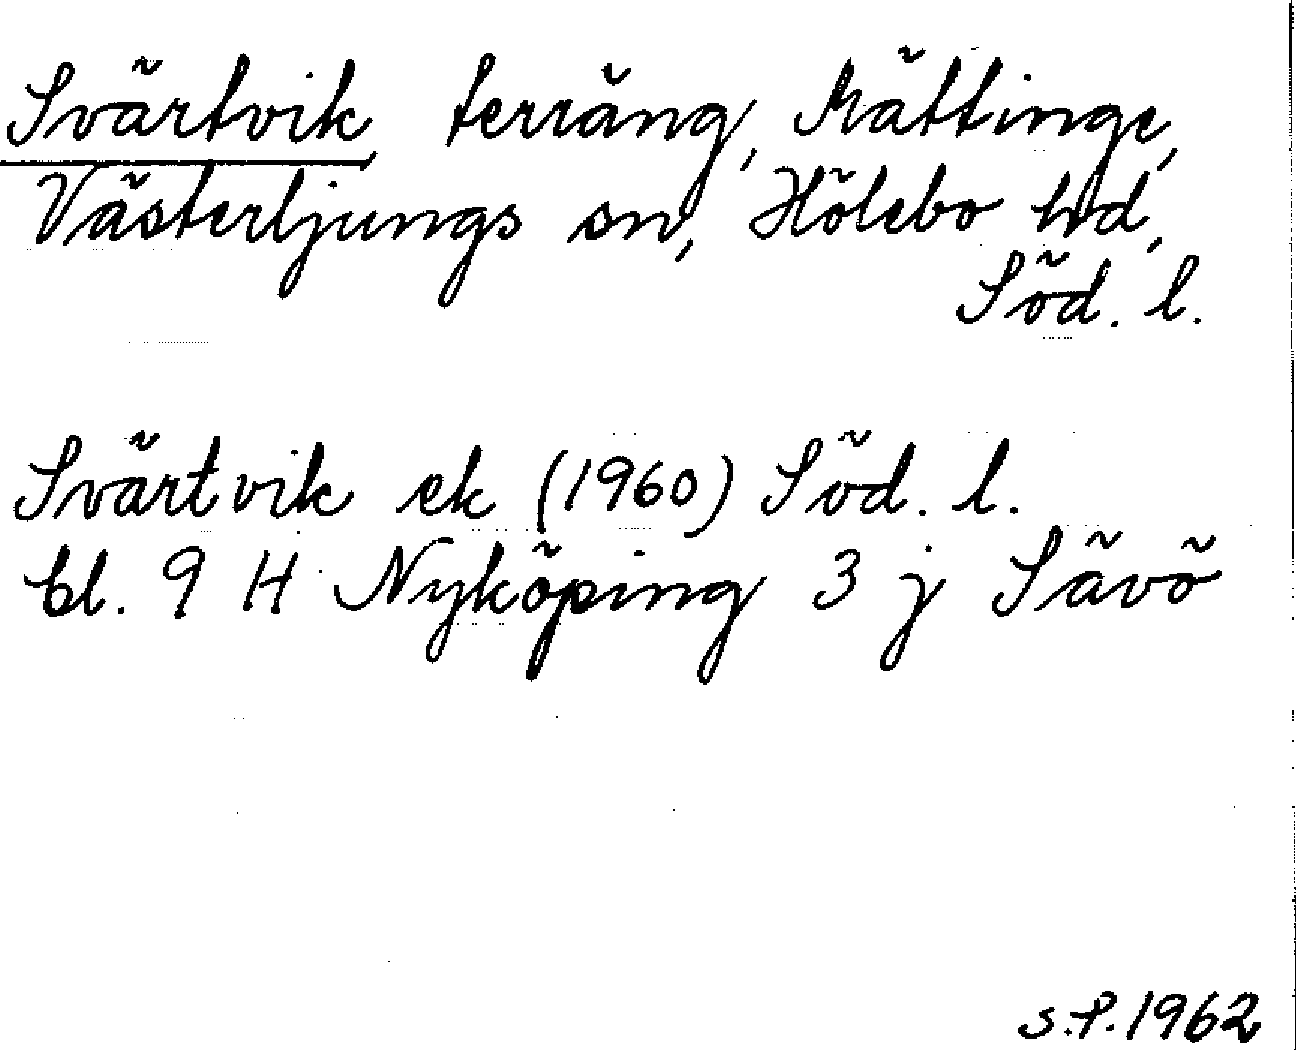 Svärtvik, terräng, Mättinge,
Västerljungs sn, Hölebo hd,
Söd. l.
Svärtvik ek (1960) Söd. l.
bl. 9 H Nyköping 3 j Sävö
S.P. 1962